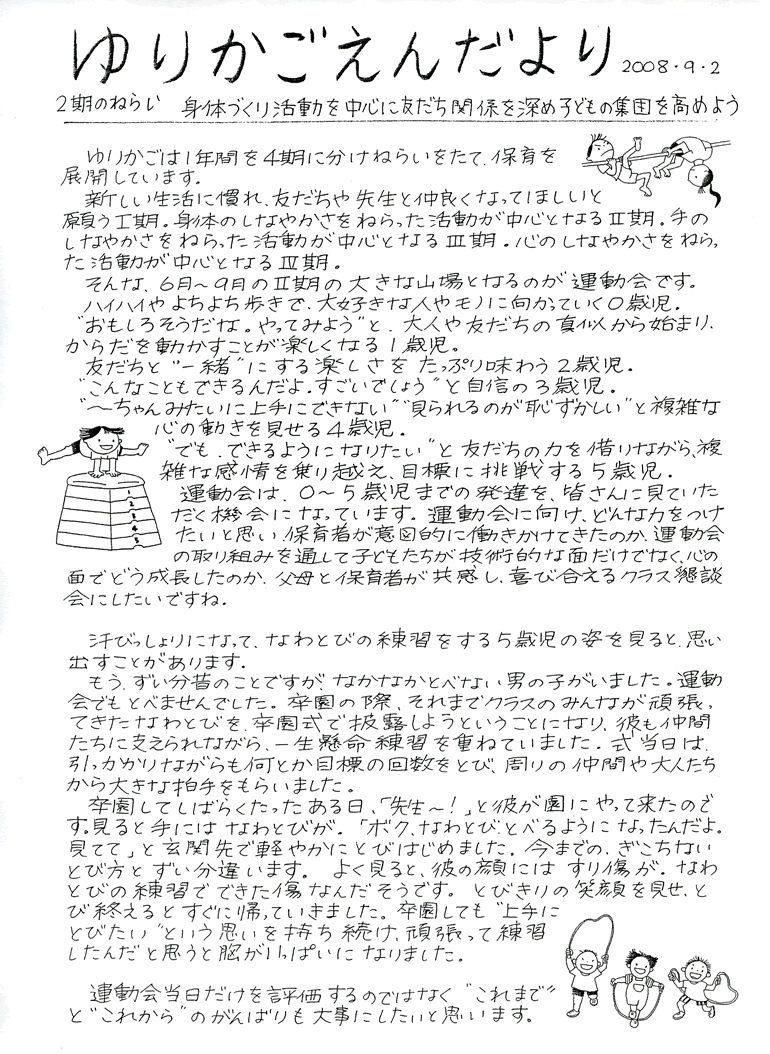 ゆりかごえんだより 2008・9・2
2期のねらい 身体づくり活動を中心に友だち関係を深め子どもの集団を高めよう
ゆりかごは1年間を4期に分けねらいをたて、保育を
展開しています。
新しい生活に慣れ、友だちや先生と仲良くなってほしいと
願うⅠ期。身体のしなやかさをねらった活動が中心となるⅡ期。手の
しなやかさをねらった活動が中心となるⅢ期。心のしなやかさをねらっ
た活動が中心となるⅣ期。
そんな、6月〜9月のⅡ期の大きな山場となるのが運動会です。
ハイハイやよちよち歩きで、大好きな人やモノに向かっていく0歳児。
"おもしろそうだな。やってみよう"と、大人や友だちの真似から始まり、
からだを動かすことが楽しくなる1歳児。
友だちと"一緒"にする楽しさをたっぷり味わう2歳児。
"こんなこともできるんだよ.すごいでしょう"と自信の3歳児。
"〜ちゃんみたいに上手にできない""見られるのが恥ずかしい"と複雑な
心の動きを見せる4歳児。
"でも、できるようになりたい"と友だちの力を借りながら、複
雑な感情を乗り越え、目標に挑戦する5歳児。
運動会は、0〜5歳児までの発達を、皆さんに見ていた
だく機会になっています。運動会に向け、どんな力をつけ
たいと思い、保育者が意図的に働きかけてきたのか、運動会
の取り組みを通して子どもたちが技術的な面だけでなく、心の
面でどう成長したのか、父母と保育者が共感し、喜び合えるクラス懇談
会にしたいですね。
汗びっしょりになって、なわとびの練習をする5歳児の姿を見ると、思い
出すことがあります。
もう、ずい分昔のことですが、なかなかとべない男の子がいました。運動
会でもとべませんでした。卒園の際、それまでクラスのみんなが頑張っ
てきたなわとびを、卒園式で披露しようということになり、彼も仲間
たちに支えられながら、一生懸命練習を重ねていました。式当日は、
引っかかりながらも何とか目標の回数をとび、周りの仲間や大人たち
から大きな拍手をもらいました。
卒園してしばらくたったある日、「先生〜!」と彼が園にやって来たので
す。見ると手にはなわとびが。「ボク、なわとびとべるようになったんだよ。
見てて」と玄関先で軽やかにとびはじめました。今までの、ぎこちない
とび方とずい分違います。 よく見ると、彼の顔にはすり傷が。なわ
とびの練習でできた傷なんだそうです。とびきりの笑顔を見せ、と
び終えるとすぐに帰っていきました。卒園しても"上手に
とびたい"という思いを持ち続け、頑張って練習
したんだと思うと胸がいっぱいになりました。
運動会当日だけを評価するのではなく"これまで"
と"これから"のがんばりも大事にしたいと思います。
1
2
3
4
5